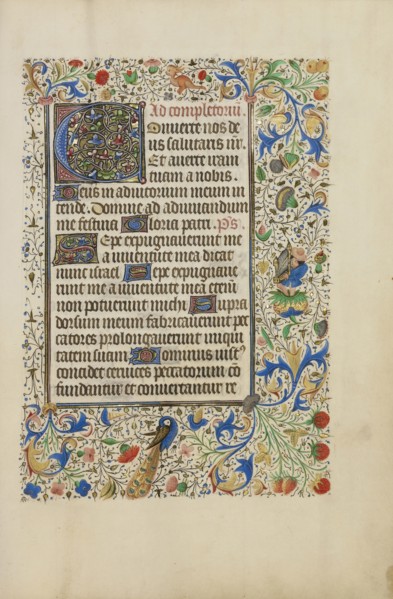 Ad completoriū.
Conuerte nos de
us salutaris nr̄.
Et auerte iram
tuam a nobis.
Deus in adiutorium meum in
tende. Domine ad adiuuandum
me festina Gloria patri. Ps̄.
Sepe expugnauerunt me
a iuuentute mea dicat
nunc israel. Sepe expugnaue
runt me a iuuentute mea eteni
non potuerunt michi Supra
dorsum meum fabricauerunt pec
catores prolongauerunt iniqui
tatem suam Dominus iust
concidet ceruices peccatorum cō
fundantur et conuertantur re